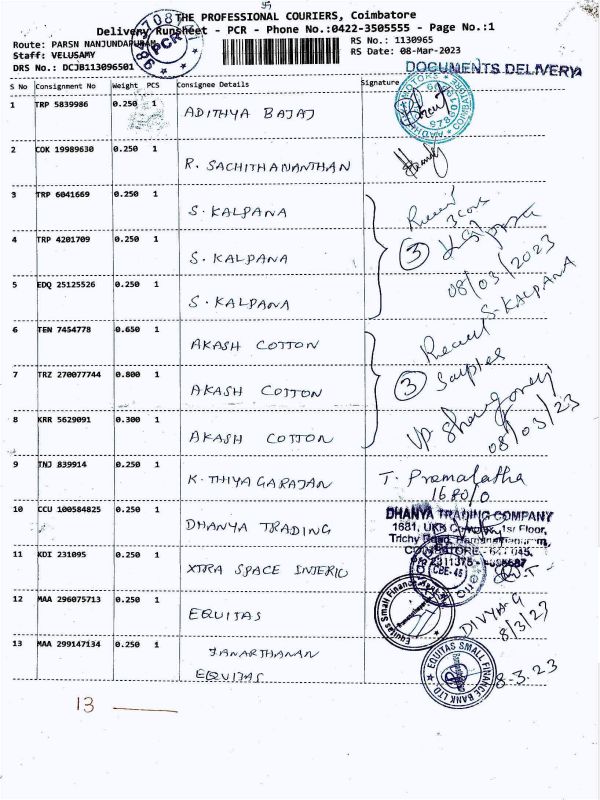 THE PROFESSIONAL COURIERS, Coimbatore
Delivery Runsheet - PCR - Phone No.:0422-3505555 - Page No.:1
Route: PARSN NANJUNDAPURAM
RS No.: 1130965
Staff: VELUSAMY
RS Date: 08-Mar-2023
DRS No.: DCJB113096501
PCR
DOCUMENTS DELIVERY
S No Consignment No Weight PCS Consignee Details Signature
1 TRP 5839986 0.250 1 ADITHYA BAJAJ
2 COK 19989630 0.250 1 R. SACHITHANANTHAN
3 TRP 6041669 0.250 1 S. KALPANA
4 TRP 4201709 0.250 1 S. KALPANA
5 EDQ 25125526 0.250 1 S. KALPANA
3
08/03/2023
S-KALPANA
6 TEN 7454778 0.650 1 AKASH COTTON
7 TRZ 270077744 0.800 1 AKASH COTTON
8 KRR 5629091 0.300 1 AKASH COTTON
3
08/03/23
9 TNJ 839914 0.250 1 K. THIYAGARAJAN T. Premalatha
10 CCU 100584825 0.250 1 DHANYA TRADING
DHANYA TRADING COMPANY
1681, 1st Floor,
Trichy Road,
11 KDI 231095 0.250 1 XTRA SPACE INTERIO
CBE-45
12 MAA 296075713 0.250 1 EQUITAS
Equitas Small Finance
DIVYA G
8/3/23
13 MAA 299147134 0.250 1 JANARTHANAN
EQUITAS
EQUITAS SMALL FINANCE BANK LTD
8-3.23
13